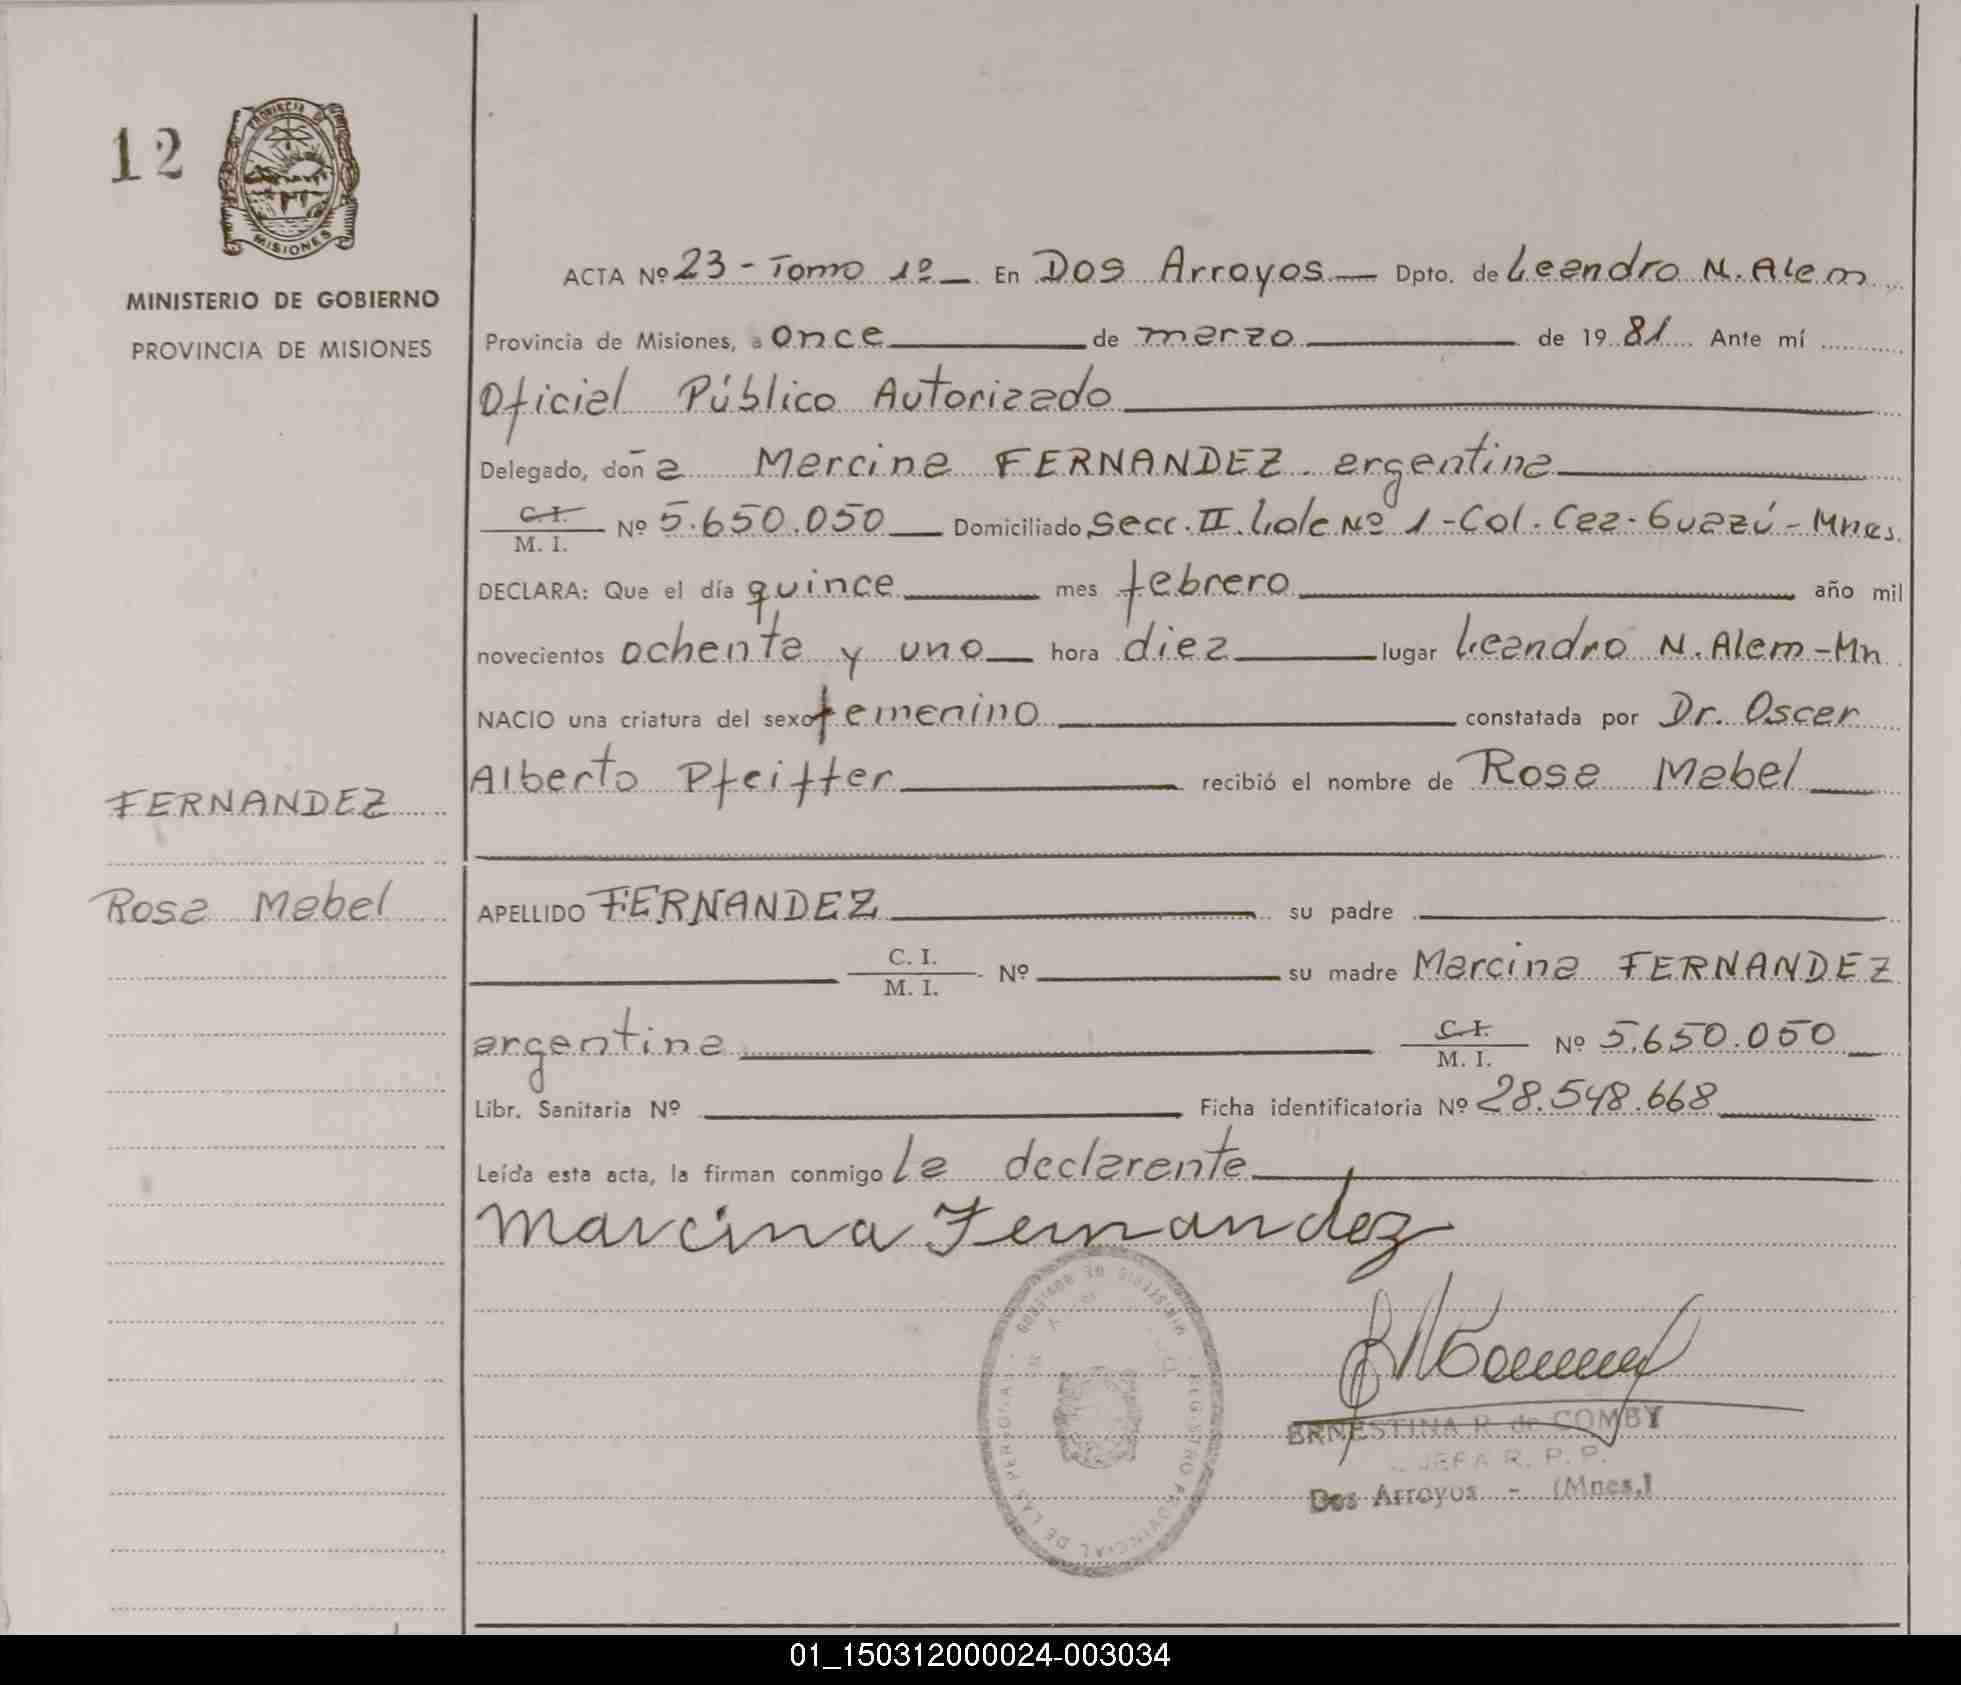 12
PROVINCIA DE
MISIONES
MINISTERIO DE GOBIERNO
PROVINCIA DE MISIONES
ACTA Nº 23 - Tomo 1º — En Dos Arroyos — Dpto. de Leandro N. Alem
Provincia de Misiones, a once de marzo de 19 81 Ante mí
Oficial Público Autorizado
Delegado, doña Marcina FERNANDEZ argentina
C. I.
M. I. Nº 5.650.050 Domiciliado Secc. II. Lote Nº 1 - Col. Caa-Guazú - Mnes.
DECLARA: Que el día quince mes febrero año mil
novecientos ochenta y uno hora diez lugar Leandro N. Alem - Mn
NACIO una criatura del sexo femenino constatada por Dr. Oscar
Alberto Pfeiffer recibió el nombre de Rosa Mabel
FERNANDEZ
Rosa Mabel
APELLIDO FERNANDEZ su padre
C. I.
M. I. Nº su madre Marcina FERNANDEZ
argentina C. I.
M. I. Nº 5.650.050
Libr. Sanitaria Nº Ficha identificatoria Nº 28.548.668
Leída esta acta, la firman conmigo la declarante
Marcina Fernandez
MINISTERIO DE GOBIERNO
REGISTRO PROVINCIAL DE LAS PERSONAS
ERNESTINA R. de COMBY
JEFA R. P. P.
Dos Arroyos - (Mnes.)
01_150312000024-003034